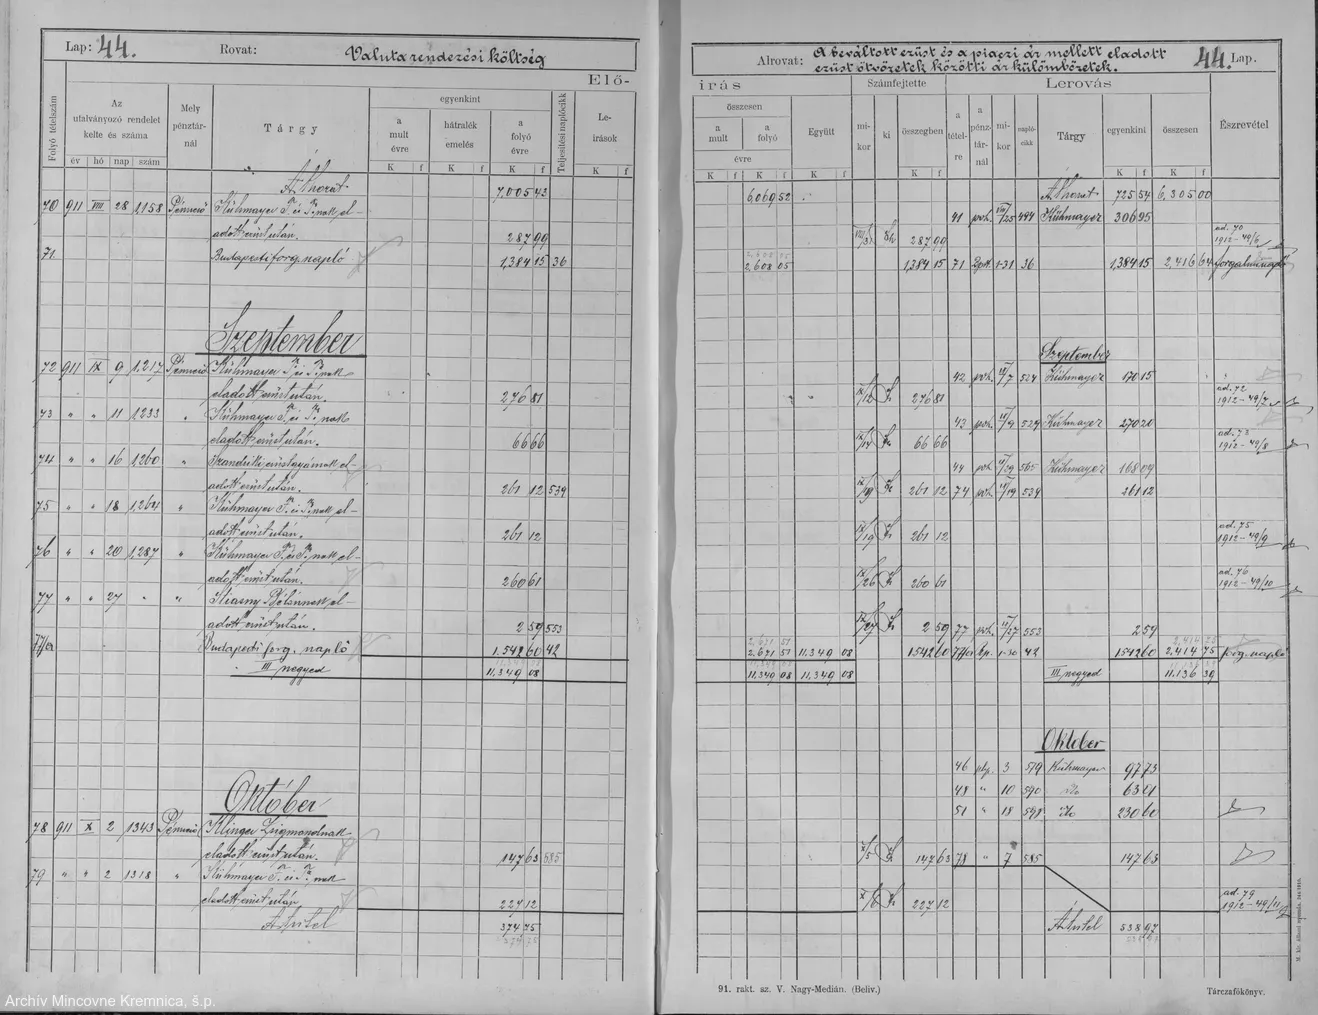 Lap: 44. Rovat: Valuta rendezési költség
Elő-
Folyó tételszám
Az utalványozó rendelet kelte és száma
év hó nap szám
Mely pénztár-nál
Tárgy
egyenkint
a mult évre
hátralék emelés
a folyó évre
K f K f K f
Teljesítési naplócikk
Le-írások
K f
Áthozat 7,005 43
70 911 VIII 28 1,158 Pénverő Kühmayer F. és F. nak el-
adott ezüst után. 287 99
71 Budapesti forg. napló 1,384 15 36
Szeptember
72 911 IX 9 1,217 Pénverő Kühmayer F. és F. nak
eladott ezüst után. 276 81
73 " " 11 1,233 " Kühmayer F. és F. nak
eladott ezüst után. 66 66
74 " " 16 1,260 " Szandriki ezüstgyárnak el-
adott ezüst után. 261 12 539
75 " " 18 1,264 " Kühmayer F. és F. nak el-
adott ezüst után. 261 12
76 " " 20 1,287 " Kühmayer F. és F. nak el-
adott ezüst után. 260 61
77 " " 27 " "
adott ezüst után. 2 59 553
77/a Budapesti forg. napló 1,542 60 42
III negyed 11,349 08
Október
78 911 X 2 1343 Pénverő Klinger Zsigmondnak
eladott ezüst után. 147 63 585
79 " " 2 1318 " Kühmayer F. és F. nak
eladott ezüst után 227 12
Átvitel 374 75
Alrovat: A beváltott ezüst és a piaczi ár mellett eladott
ezüst ötvözetek közötti ár külömbözetek.
44. Lap.
irás
összesen
a mult
a folyó
évre
Együtt
K f K f K f
Számfejtette
mi-kor
ki
összegben
K f
Lerovás
a tétel-re
a pénz-tár-nál
mi-kor
napló-cikk
Tárgy
egyenkint
összesen
K f K f
Észrevétel
6,069 52 Áthozat 725 54 6,305 00
41 pvh. VIII/25 494 Kühmayer 306 95
287 99 ad. 70
1912-49/6
2,608 05 1,384 15 71 1-31 36 1,384 15 2,416 64 forgalmi napló
Szeptember
42 pvh. IX/7 524 Kühmayer 170 15
IX/12 276 81 ad. 72
1912-49/7
43 pvh. IX/9 529 Kühmayer 270 20
IX/14 66 66 ad. 73
1912-49/8
44 pvh. IX/29 565 Kühmayer 168 09
IX/19 261 12 74 pvh. IX/19 539 261 12
IX/19 261 12 ad. 75
1912-49/9
IX/26 260 61 ad. 76
1912-49/10
IX/27 2 59 77 pvh. IX/27 553 2 59
2,671 51 11,349 08 1542 60 77/a bp. 1-30 42 1542 60 2,414 75 forg. napló
11,349 08 11,349 08 III negyed 11,136 39
Október
46 3 579 Kühmayer 97 73
48 " 10 590 dto 63 01
51 " 18 598 dto 230 60
X/5 147 63 78 " 7 585 147 63
X/6 227 12 ad. 79
1912-49/11
Átvitel 538 97
91. rakt. sz. V. Nagy-Medián. (Beliv.)
Tárczafőkönyv.
Archív Mincovne Kremnica, š.p.